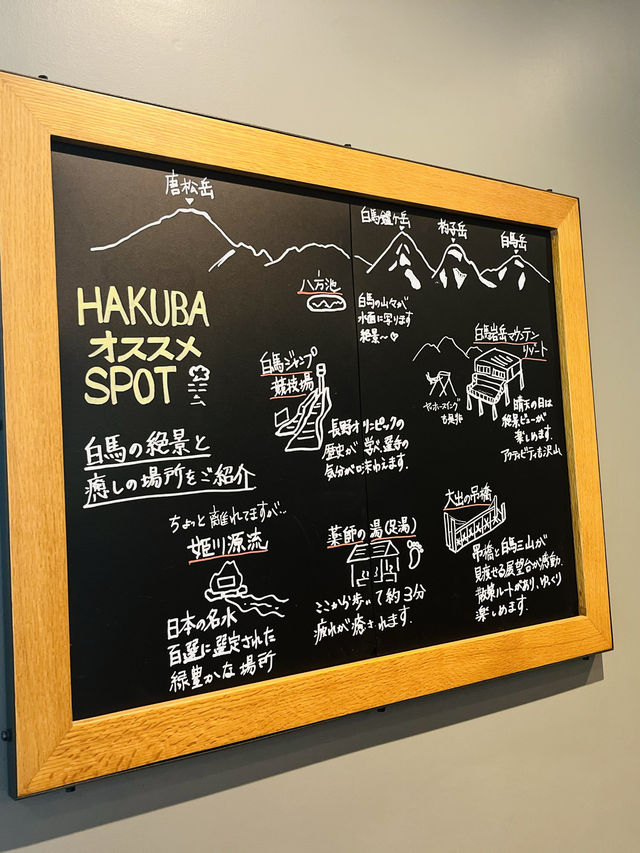 唐松岳
白馬鑓ヶ岳
杓子岳
白馬岳
HAKUBA
オススメ
SPOT
白馬の絶景と
癒しの場所をご紹介
八方池
白馬の山々が
水面に写ります
絶景~♡
白馬ジャンプ
競技場
長野オリンピックの
歴史が学べ選手の
気分が味わえます.
白馬岩岳マウンテン
リゾート
ヤッホースイング
も是非
晴天の日は
絶景ビューが
楽しめます.
アクティビティも沢山
ちょっと離れてますが...
姫川源流
日本の名水
百選に選定された
緑豊かな場所
薬師の湯(足湯)
ここから歩いて約3分
疲れが癒されます.
大出の吊橋
吊橋と白馬三山が
見渡せる展望台が
散策ルートがあり、ゆっくり
楽しめます.